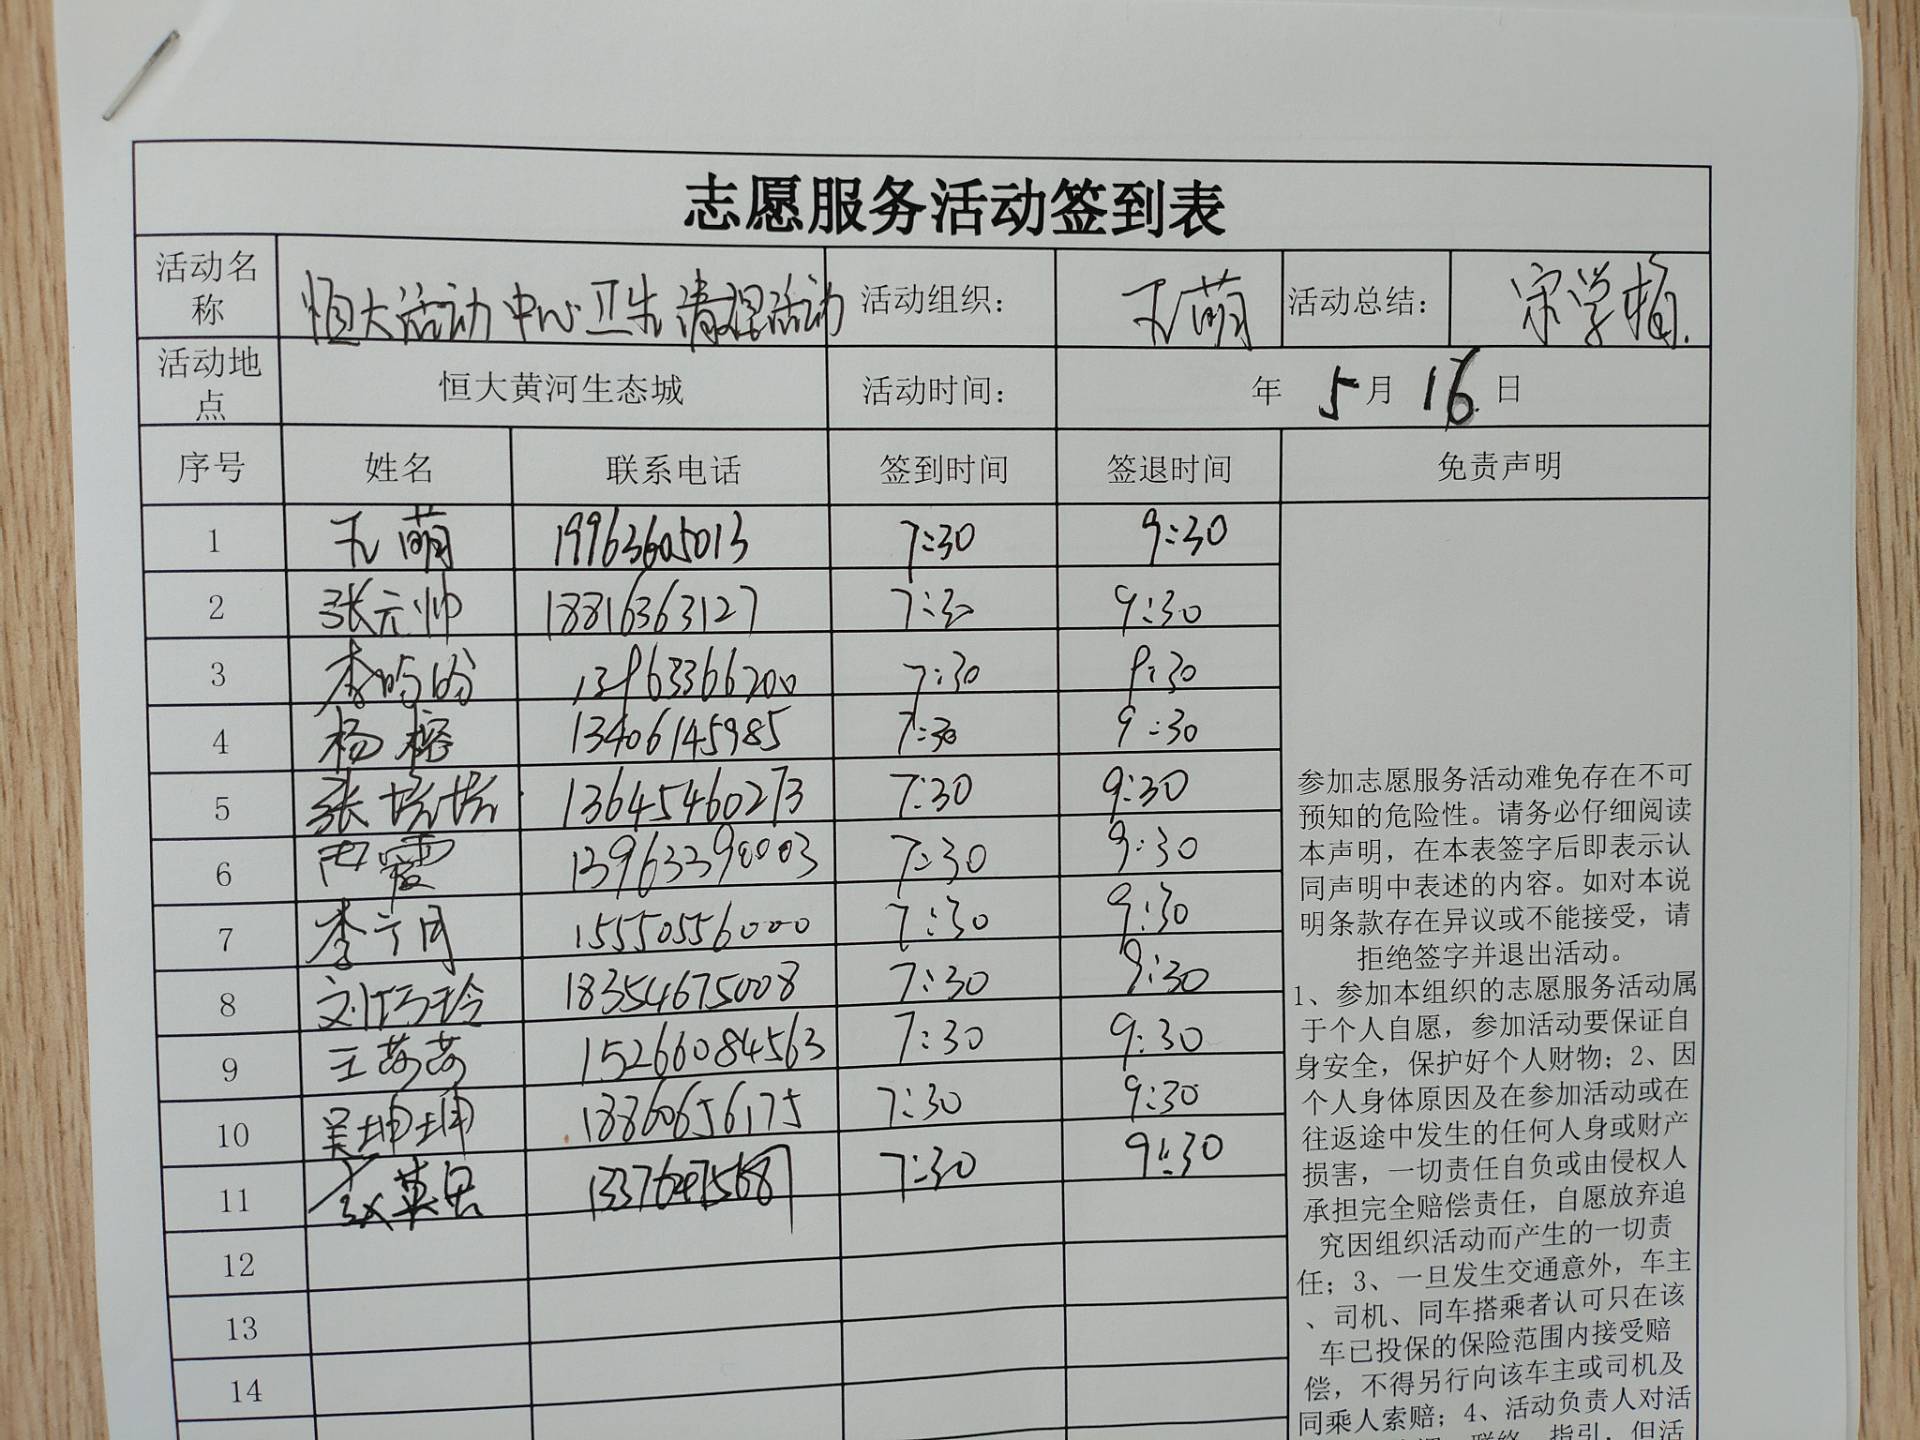 志愿服务活动签到表
活动名称 恒大活动中心卫生清理活动 活动组织： 王萌 活动总结： 宋学梅.
活动地点 恒大黄河生态城 活动时间： 年 5 月 16 日
序号 姓名 联系电话 签到时间 签退时间 免责声明
1 王萌 19963605013 7:30 9:30
2 张元帅 18816363127 7:30 9:30
3 李 13963366200 7:30 9:30
4 杨榕 13406145985 7:30 9:30
5 张培培 13645460273 7:30 9:30
6 13963390003 7:30 9:30
7 李 15550556000 7:30 9:30
8 刘巧玲 18354675008 7:30 9:30
9 王苛苛 15266084563 7:30 9:30
10 吴坤坤 18860656175 7:30 9:30
11 赵英 7:30 9:30
12
13
14
参加志愿服务活动难免存在不可
预知的危险性。请务必仔细阅读
本声明，在本表签字后即表示认
同声明中表述的内容。如对本说
明条款存在异议或不能接受，请
拒绝签字并退出活动。
1、参加本组织的志愿服务活动属
于个人自愿，参加活动要保证自
身安全，保护好个人财物；2、因
个人身体原因及在参加活动或在
往返途中发生的任何人身或财产
损害，一切责任自负或由侵权人
承担完全赔偿责任，自愿放弃追
究因组织活动而产生的一切责
任；3、一旦发生交通意外，车主
、司机、同车搭乘者认可只在该
车已投保的保险范围内接受赔
偿，不得另行向该车主或司机及
同乘人索赔；4、活动负责人对活
联络、指引，但活